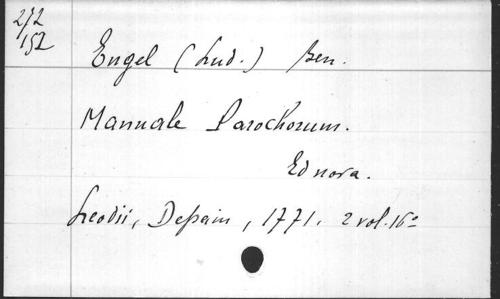 272
152
Engel (Lud.) Ben.
Manuale Parochorum.
Ed nova.
Leodii, Depain, 1771. 2 vol. 16°